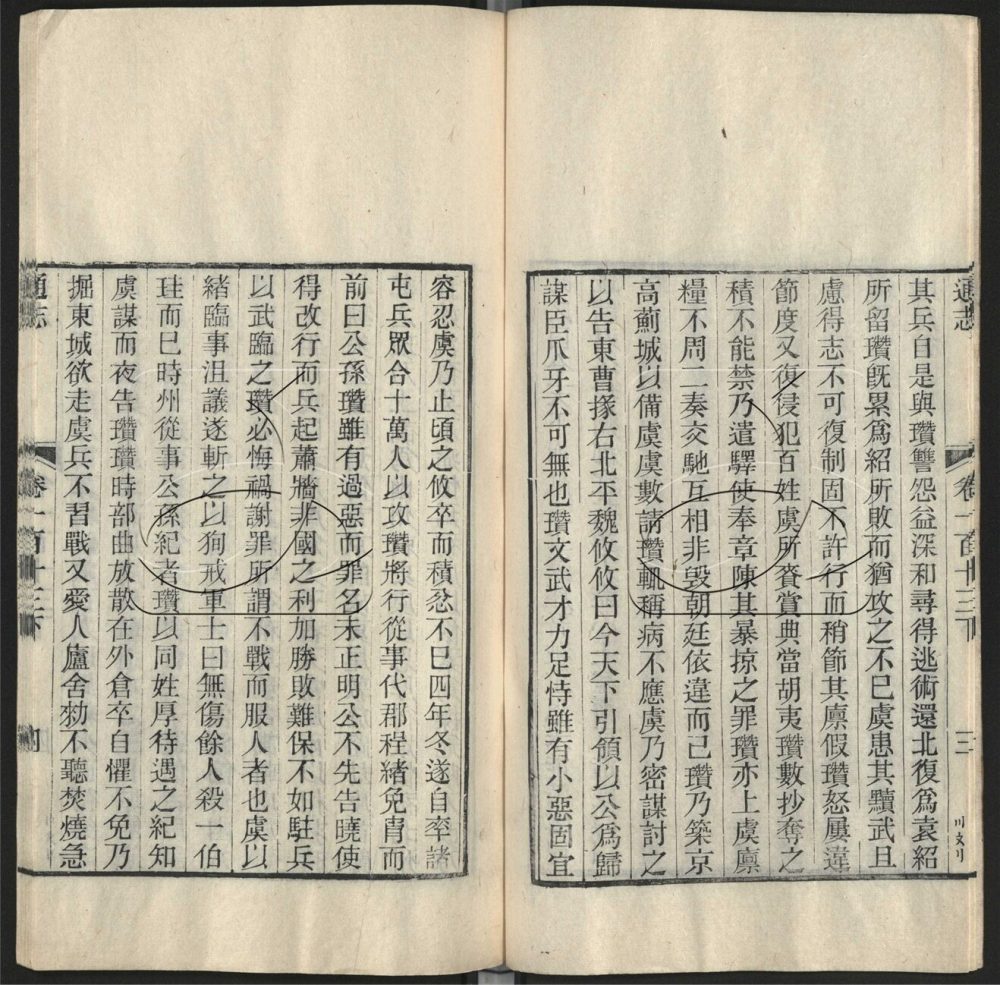 通志
卷一百十三下
三
其兵自是與瓚讐怨益深和尋得逃術還北復爲袁紹
所留瓚旣累爲紹所敗而猶攻之不巳虞患其黷武且
慮得志不可復制固不許行而稍節其廪假瓚怒屢違
節度又復侵犯百姓虞所賚賞典當胡夷瓚數抄奪之
積不能禁乃遣驛使奉章陳其暴掠之罪瓚亦上虞廪
糧不周二奏交馳互相非毀朝廷依違而已瓚乃築京
高薊城以備虞虞數請瓚輒稱病不應虞乃密謀討之
以告東曹掾右北平魏攸攸曰今天下引領以公爲歸
謀臣爪牙不可無也瓚文武才力足恃雖有小惡固宜
容忍虞乃止頃之攸卒而積忿不巳四年冬遂自率諸
屯兵眾合十萬人以攻瓚將行從事代郡程緒免胄而
前曰公孫瓚雖有過惡而罪名未正明公不先告曉使
得改行而兵起蕭牆非國之利加勝敗難保不如駐兵
以武臨之瓚必悔禍謝罪所謂不戰而服人者也虞以
緒臨事沮議遂斬之以狥戒軍士曰無傷餘人殺一伯
珪而巳時州從事公孫紀者瓚以同姓厚待遇之紀知
虞謀而夜告瓚瓚時部曲放散在外倉卒自懼不免乃
掘東城欲走虞兵不習戰又愛人廬舍勑不聽焚燒急
通志
卷一百十三下